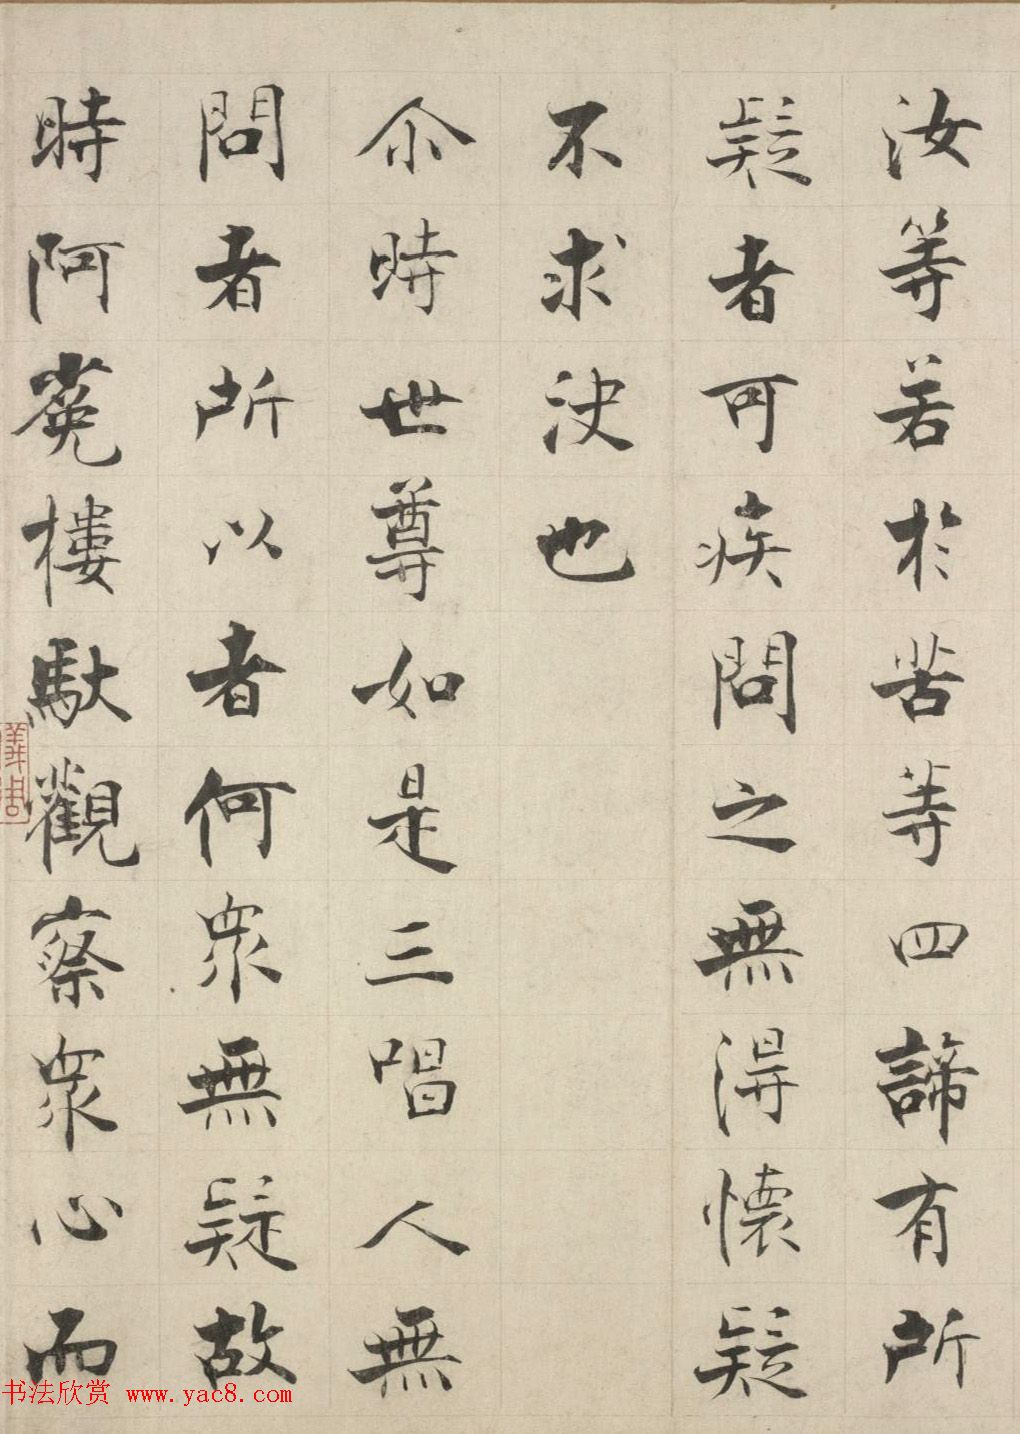 汝等若於苦等四諦有所
疑者可疾問之無淂懷疑
不求決也
尒時世尊如是三唱人無
問者所以者何衆無疑故
時阿菟樓馱觀察衆心而
书法欣赏 www.yac8.com